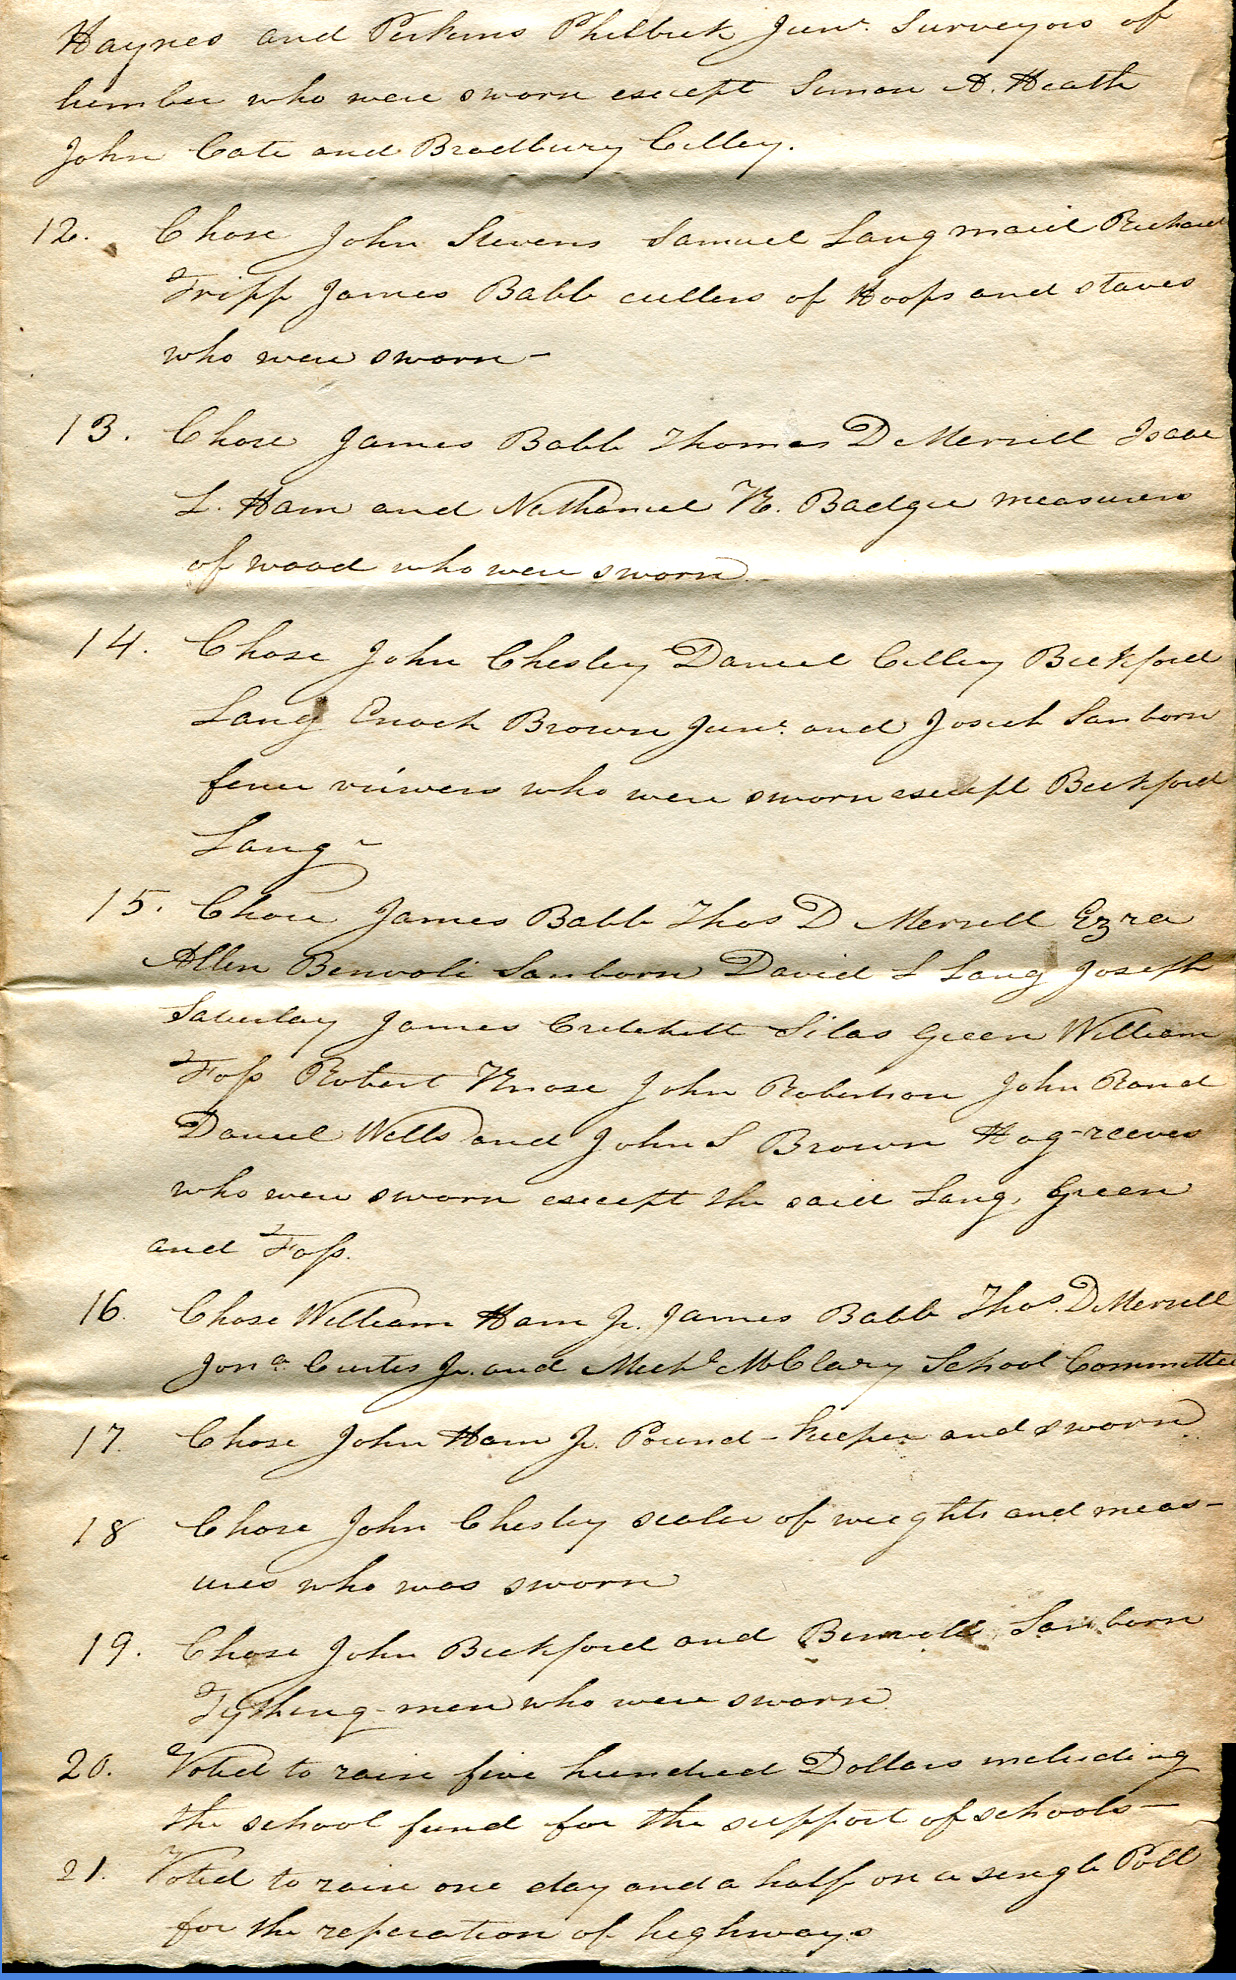 Haynes and Perkins Philbrick Junr. Surveyors of
lumber who were sworn except Simon A. Heath
John Cate and Bradbury Cilley.
12. Chose John Stevens Samuel Langmaid Richard
Tripp James Babb cullers of Hoops and staves
who were sworn-
13. Chose James Babb Thomas D Merrill Isaac
L. Ham and Nathaniel K. Badger measurers
of wood who were sworn
14. Chose John Chesley Daniel Cilley Bickford
Lang Enoch Brown Junr. and Josiah Sanborn
fence viewers who were sworn except Bickford
Lang-
15. Chose James Babb Thos D Merrill Ezra
Allen Benvoli Sanborn David L Lang Joseph
James Critchett Silas Green William
Foss Robert Knox John Robertson John Rand
Daniel Wells and John S Brown Hog-reeves
who were sworn except the said Lang, Green
and Foss.
16. Chose William Ham Jr. James Babb Thos. D Merrill
Jona. Curtis Jr. and Michl McClary School Committee
17. Chose John Ham Jr. Pound-keeper and sworn.
18 Chose John Chesley sealer of weights and meas-
ures who was sworn
19. Chose John Bickford and Benvoli Sanborn
Tything-men who were sworn
20. Voted to raise five hundred Dollars including
the school fund for the support of schools-
21. Voted to raise one day and a half on a single Poll
for the reparation of highways